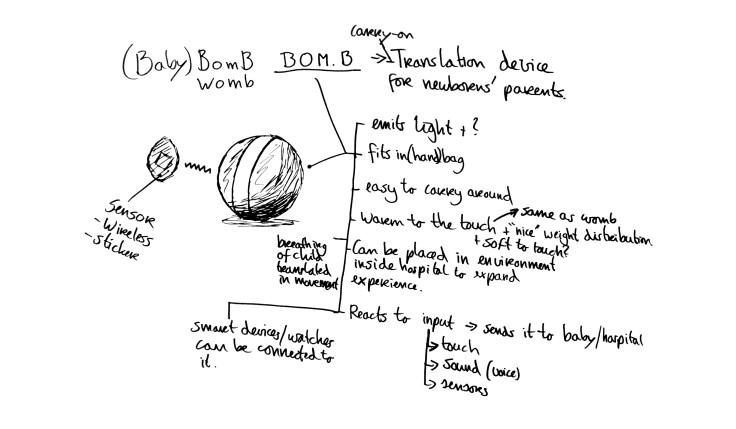 carry-on
(Baby) BomB BOM.B → Translation device
womb for newborens' parents.
emits light + ?
fits in (hand)bag
easy to carry around
→ same as womb
warm to the touch + "nice" weight distribution
+ soft to touch?
Sensor
- Wireless
- sticker
breathing
of child
translated
in movement
Can be placed in environment
inside hospital to expand
experience.
Reacts to input → sends it to baby/hospital
→ touch
→ sound (voice)
→ sensors
smart devices/watches
can be connected to
it.